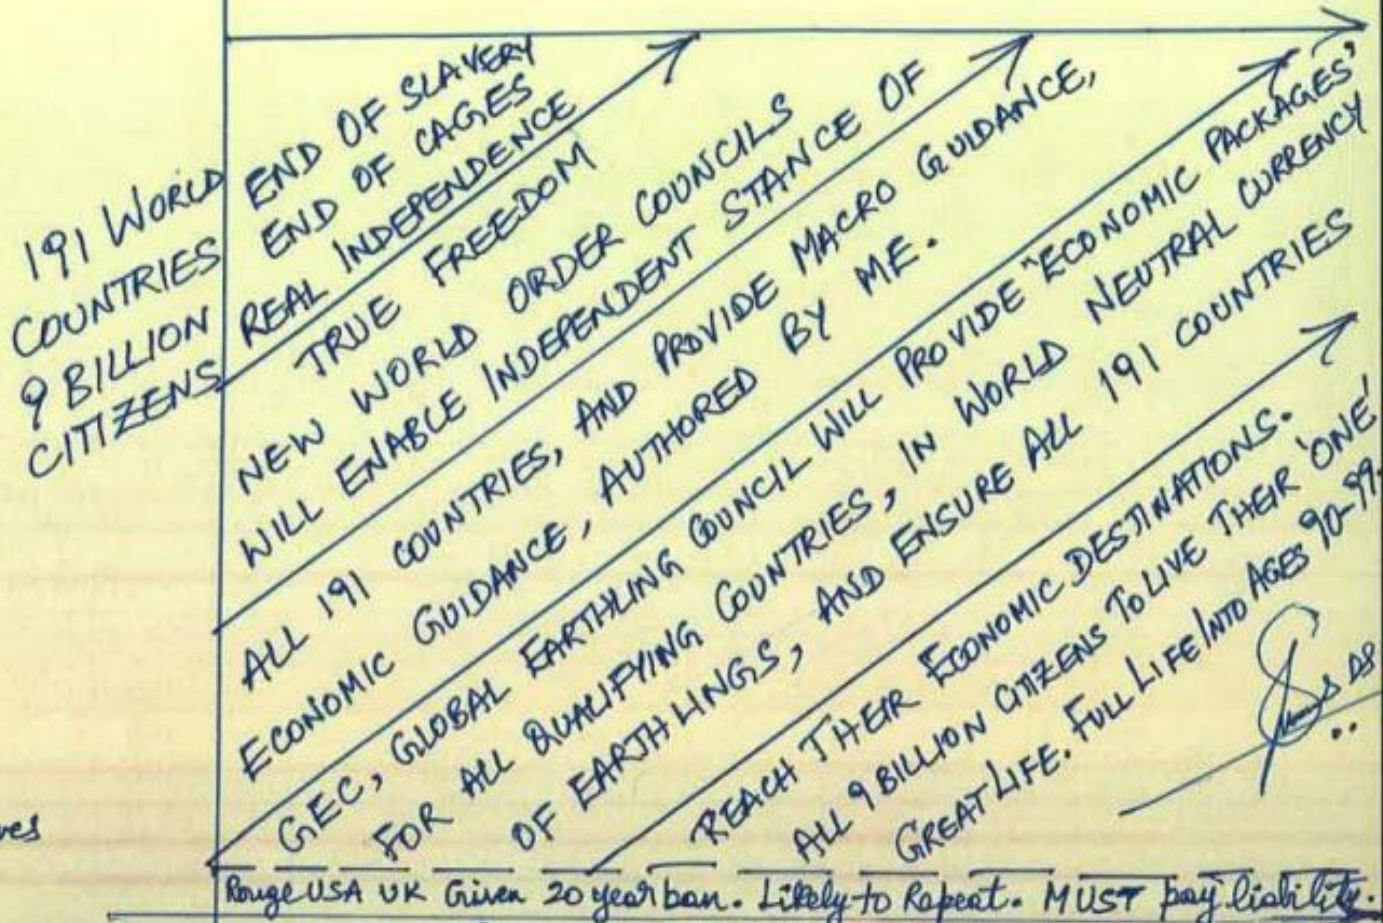 191 WORLD
COUNTRIES
9 BILLION
CITIZENS
END OF SLAVERY
END OF CAGES
REAL INDEPENDENCE
TRUE FREEDOM
NEW WORLD ORDER COUNCILS
WILL ENABLE INDEPENDENT STANCE OF
ALL 191 COUNTRIES, AND PROVIDE MACRO GUIDANCE,
ECONOMIC GUIDANCE, AUTHORED BY ME.
GEC, GLOBAL EARTHLING COUNCIL WILL PROVIDE "ECONOMIC PACKAGES"
FOR ALL QUALIFYING COUNTRIES, IN WORLD NEUTRAL CURRENCY
OF EARTHLINGS, AND ENSURE ALL 191 COUNTRIES
REACH THEIR ECONOMIC DESTINATIONS.
ALL 9 BILLION CITIZENS TO LIVE THEIR 'ONE'
GREAT LIFE. FULL LIFE INTO AGES 90-99.
Rouge USA UK Given 20 year ban. Likely to Repeat. MUST pay liability.